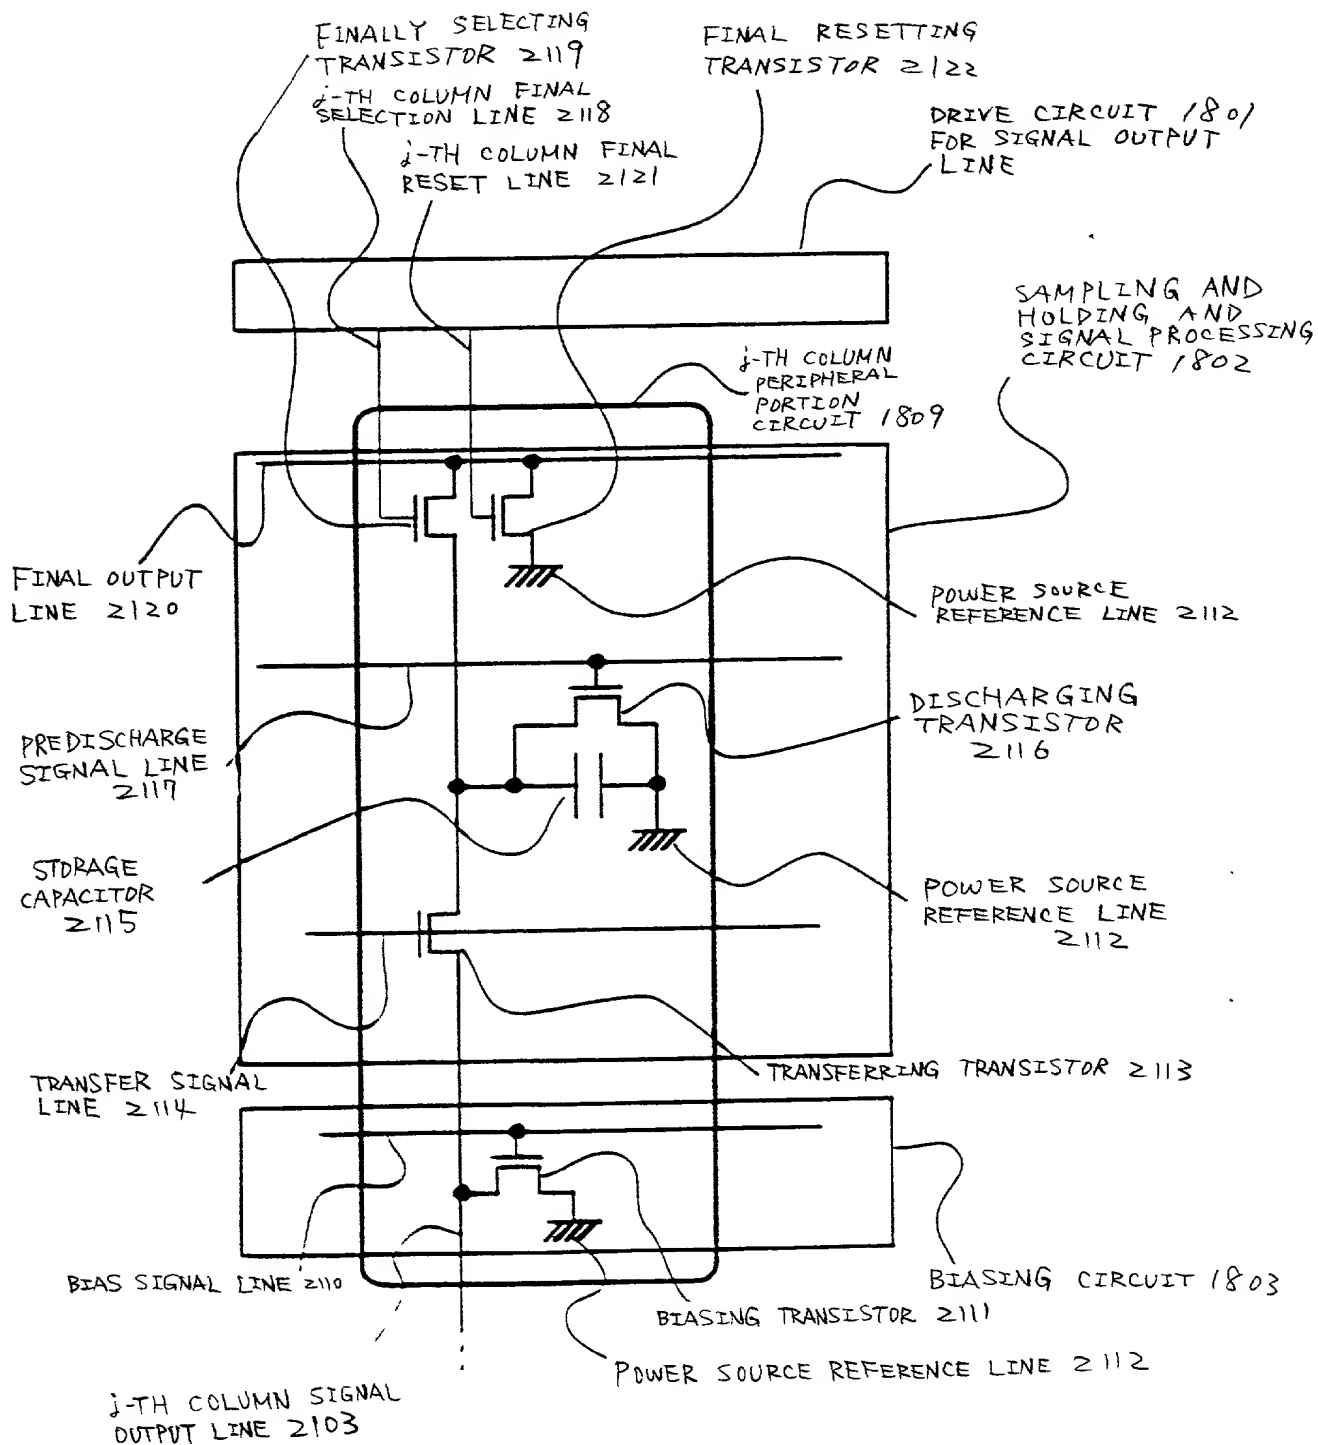 FINALLY SELECTING
TRANSISTOR 2119
j-TH COLUMN FINAL
SELECTION LINE 2118
j-TH COLUMN FINAL
RESET LINE 2121
FINAL RESETTING
TRANSISTOR 2122
DRIVE CIRCUIT 1801
FOR SIGNAL OUTPUT
LINE
SAMPLING AND
HOLDING AND
SIGNAL PROCESSING
CIRCUIT 1802
j-TH COLUMN
PERIPHERAL
PORTION
CIRCUIT 1809
FINAL OUTPUT
LINE 2120
POWER SOURCE
REFERENCE LINE 2112
DISCHARGING
TRANSISTOR
2116
PREDISCHARGE
SIGNAL LINE
2117
STORAGE
CAPACITOR
2115
POWER SOURCE
REFERENCE LINE
2112
TRANSFER SIGNAL
LINE 2114
TRANSFERRING TRANSISTOR 2113
BIAS SIGNAL LINE 2110
BIASING CIRCUIT 1803
BIASING TRANSISTOR 2111
POWER SOURCE REFERENCE LINE 2112
j-TH COLUMN SIGNAL
OUTPUT LINE 2103